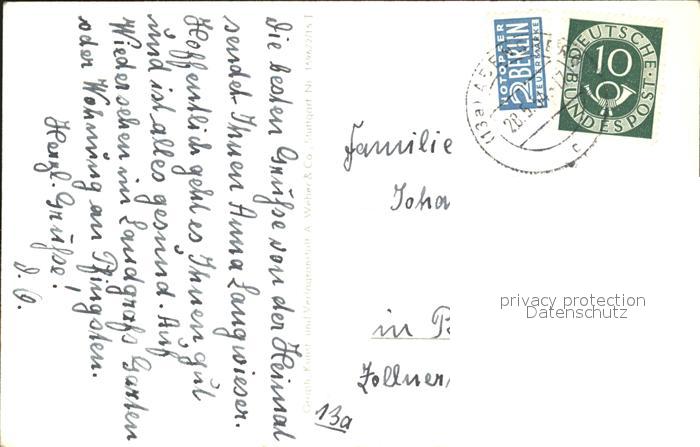 Die besten Grüße von der Heimat
sendet Ihnen Anna Langwieser.
Hoffentlich geht es Ihnen gut
und ist alles gesund. Auf
Wiedersehen im Landgrafs Garten
oder Wohnung an Pfingsten.
Herzl. Grüße!
Graph. Kunst- und Verlagsanstalt A. Weber & Co., Stuttgart
NOTOPFER
2 BERLIN
STEUERMARKE
DEUTSCHE
10
BUNDESPOST
(13a)
28.5.
c
Familie
Joha
in
Zollner
13a
privacy protection
Datenschutz